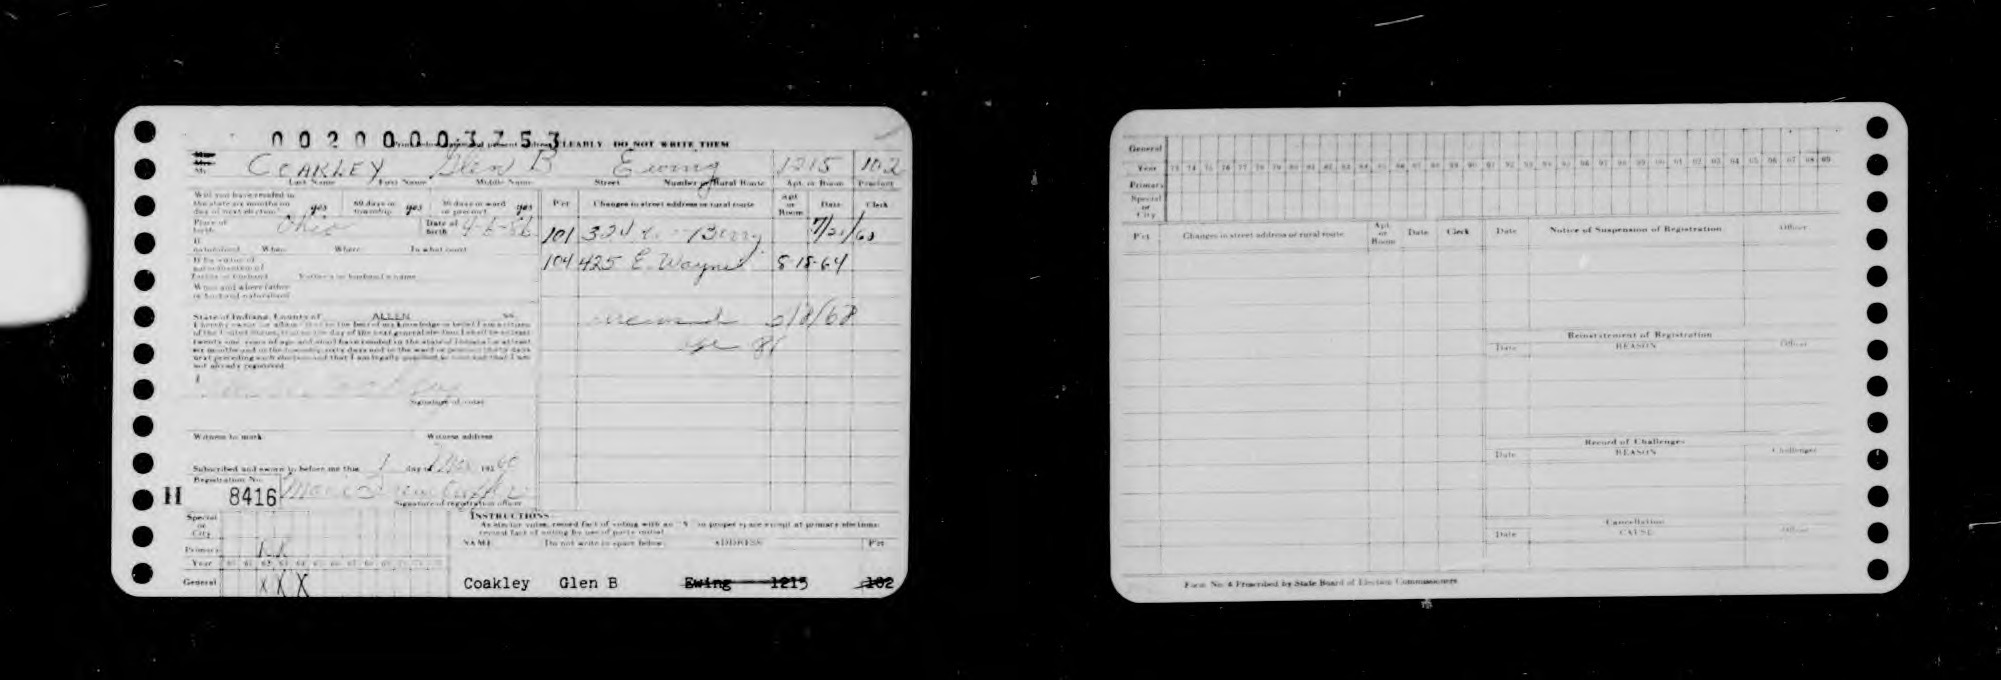 0020000 3753
CLEARLY DO NOT WRITE THEM
COAKLEY Glen B Ewing 1215 102
Last Name First Name Middle Name Street Number or Rural Route Apt. or Room Precinct
Will you have resided in the state six months on day of next election? yes 60 days in township yes 30 days in ward or precinct yes
Pct Changes in street address or rural route Apt. or Room Date Clerk
Place of birth Ohio Date of birth 4-6-86
101 324 Berry 7/21/60
If naturalized When Where In what court
104 425 E. Wayne 8-18-64
When and where father or husband naturalized
State of Indiana, County of ALLEN ss.
I hereby swear (or affirm) that to the best of my knowledge or belief I am a citizen
of the United States, that on the day of the next general election I shall be at least
twenty-one years of age and shall have resided in the state of Indiana for at least
six months and in the township sixty days and in the ward or precinct thirty days
next preceding such election and that I am legally qualified to vote and that I am
not already registered
/8/68
age 81
Signature of voter
Witness to mark Witness address
Subscribed and sworn to before me this 1 day of Mar 1960
Registration No.
H 8416
Signature of registration officer
Special or City
INSTRUCTIONS
As elector votes, record fact of voting with an "X" in proper space except at primary elections
record fact of voting by use of party initial
Primary R R
NAME Do not write in space below ADDRESS Pct
Year 60 61 62 63 64 65 66 67 68 69
General X X X
Coakley Glen B Ewing 1215 102
General
Year 73 74 75 76 77 78 79 80 81 82 83 84 85 86 87 88 89 90 91 92 93 94 95 96 97 98 99 00 01 02 03 04 05 06 07 08 09
Primary
Special or City
Pct Changes in street address or rural route Apt. or Room Date Clerk Date Notice of Suspension of Registration Officer
Reinstatement of Registration
Date REASON Officer
Record of Challenges
Date REASON Challenger
Cancellation
Date CAUSE Officer
Form No. 4 Prescribed by State Board of Election Commissioners